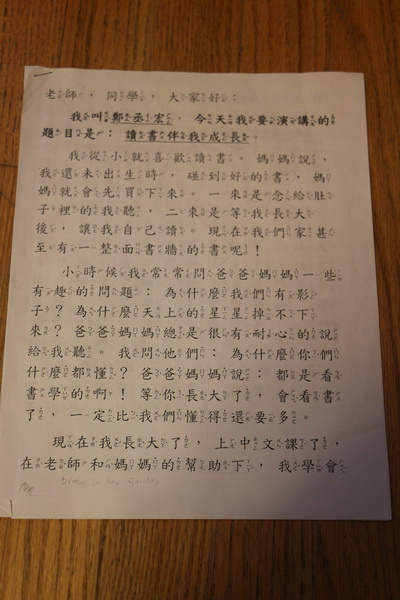 老師，同學，大家好：
我叫鄭丞宏，今天我要演講的
題目是：讀書伴我成長。
我從小就喜歡讀書。媽媽說，
我還未出生時，碰到好的書，媽
媽就會先買下來。一來是念給肚
子裡的我聽，二來是等我長大
後，讓我自己讀。現在我們家甚
至有一整面書牆的書呢！
小時候我常常問爸爸媽媽一些
有趣的問題：為什麼我們有影
子？為什麼天上的星星掉不下
來？爸爸媽媽總是很有耐心的說
給我聽。我問他們：為什麼你們
什麼都懂？爸爸媽媽說：都是看
書學的啊！等你長大了，會看書
了，一定比我們懂得還要多。
現在我長大了，上中文課了，
在老師和媽媽的幫助下，我學會